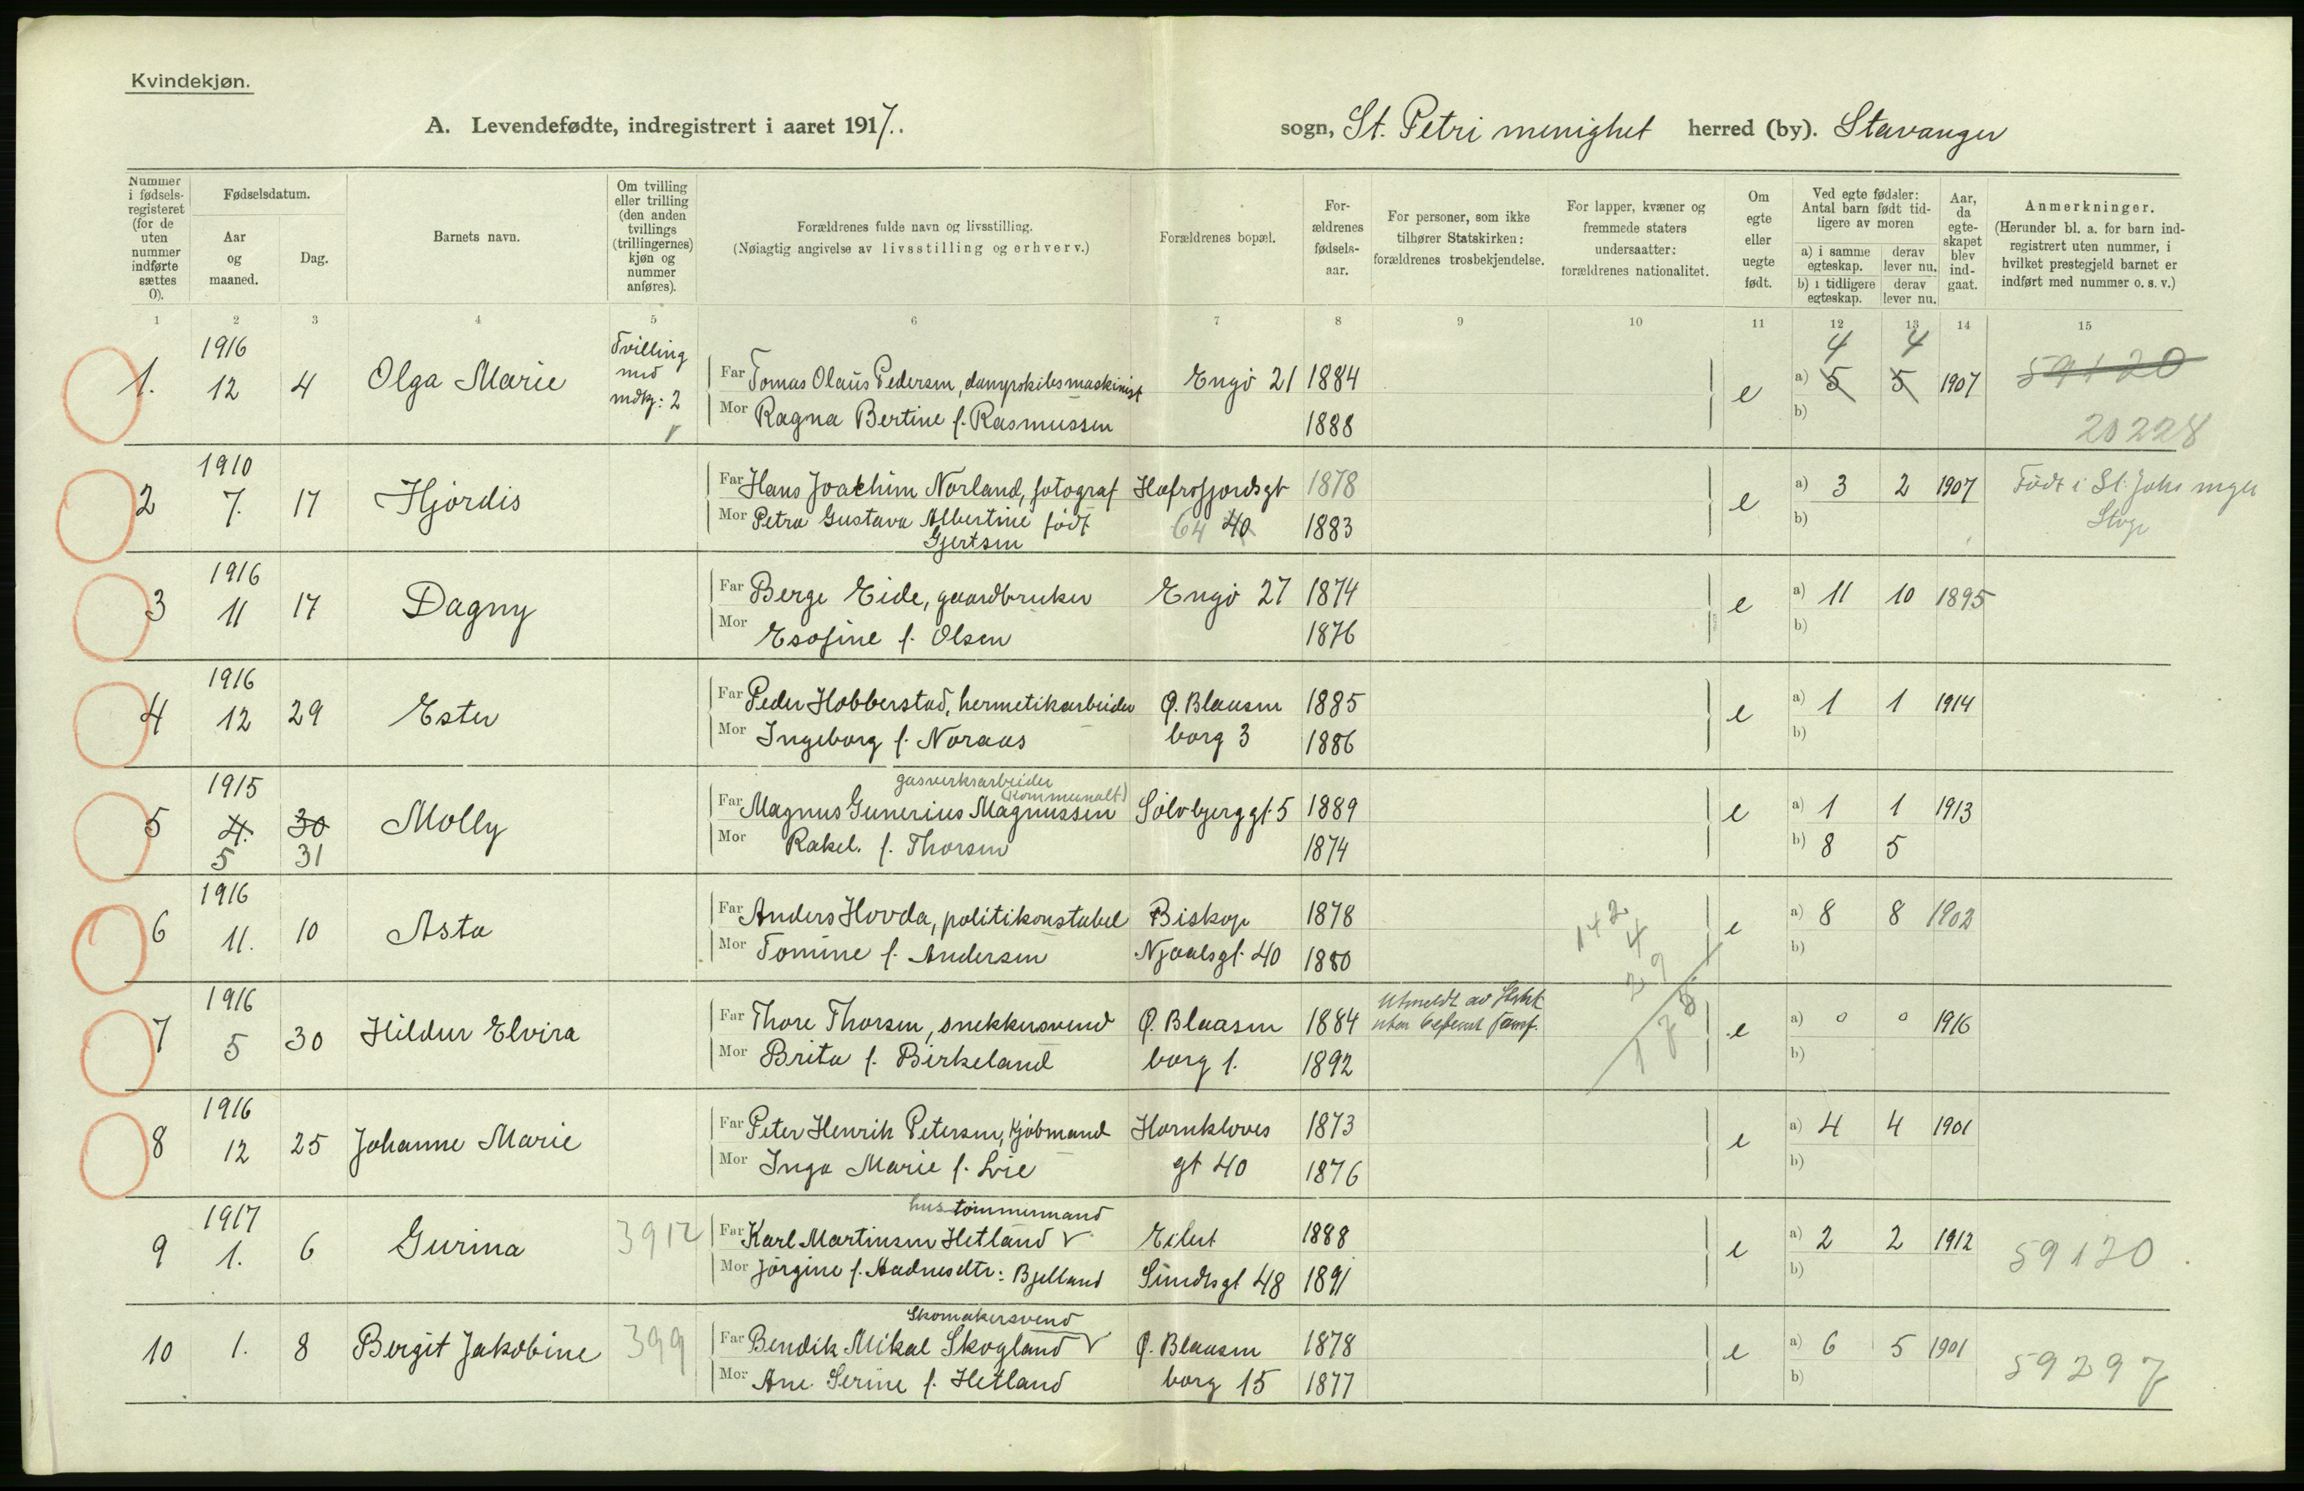 Kvindekjøn.
A. Levendefødte, indregistrert i aaret 1917.. sogn, St. Petri menighet herred (by). Stavanger
Nummer i fødsels-registeret (for de uten nummer indførte sættes 0).
Fødselsdatum.
Aar og maaned.
Dag.
Barnets navn.
Om tvilling eller trilling (den anden tvillings (trillingernes) kjøn og nummer anføres).
Forældrenes fulde navn og livsstilling.
(Nøiagtig angivelse av livsstilling og erhverv.)
Forældrenes bopæl.
For-ældrenes fødsels-aar.
For personer, som ikke tilhører Statskirken: forældrenes trosbekjendelse.
For lapper, kvæner og fremmede staters undersaatter: forældrenes nationalitet.
Om egte eller uegte født.
Ved egte fødsler: Antal barn født tid-ligere av moren
a) i samme egteskap.
derav lever nu.
b) i tidligere egteskap.
derav lever nu.
Aar, da egte-skapet blev ind-gaat.
Anmerkninger.
(Herunder bl. a. for barn ind-registrert uten nummer, i hvilket prestegjeld barnet er indført med nummer o. s. v.)
1 2 3 4 5 6 7 8 9 10 11 12 13 14 15
1916 Tvilling 4 4
1. 12 4 Olga Marie med mdkj: 2 Far Tomas Olaüs Pedersen, dampskibsmaskinist Engø 21 1884 e a) 5 5 1907 59120
Mor Ragna Bertine f. Rasmussen 1888 b) 20228
1910
2 7. 17 Hjørdis Far Hans Joachim Norland, fotograf Hafrsfjordsgt 1878 e a) 3 2 1907 Født i St. Johs mgh
Mor Petra Gustava Albertine født 64 40 1883 b) Stvgr
Gjertsen
1916
3 11 17 Dagny Far Berge Eide, gaardbruker Engø 27 1874 e a) 11 10 1895
Mor Esofine f. Olsen 1876 b)
1916
4 12 29 Ester Far Peder Hobberstad, hermetikarbeider Ø. Blaasen 1885 e a) 1 1 1914
Mor Ingeborg f. Noraas borg 3 1886 b)
1915 gasverksarbeider
(kommunalt)
5 4. 30 Molly Far Magnus Gunerius Magnussen Sølvbjerggt. 5 1889 e a) 1 1 1913
5 31 Mor Rakel. f. Thorsen 1874 b) 8 5
1916
6 11. 10 Asta Far Anders Hovda, politikonstabel Biskop 1878 142 e a) 8 8 1902
Mor Tomine f. Andersen Njaalsgt. 40 1880 4 b)
1916
7 5 30 Hildur Elvira Far Thore Thorsen, snekkersvend Ø. Blaasen 1884 Utmeldt av Statsk e a) 0 0 1916
Mor Brita f. Birkeland borg 1. 1892 b)
1916
8 12 25 Johanne Marie Far Peter Henrik Petersen, kjøbmand Hornkloves 1873 e a) 4 4 1901
Mor Inga Marie f. Lie gt 40 1876 b)
1917 hustømmermand
9 1. 6 Gurina 3912 Far Karl Martinsen Hetland Eilert 1888 e a) 2 2 1912 59120
Mor Jørgine f. Aadnesdtr: Bjelland Sundtsgt 48 1891 b)
Skomakersvend
10 1. 8 Bergit Jakobine 399 Far Bendik Mikal Skogland Ø. Blaasen 1878 e a) 6 5 1901 59297
Mor Ane Serine f. Hetland borg 15 1877 b)